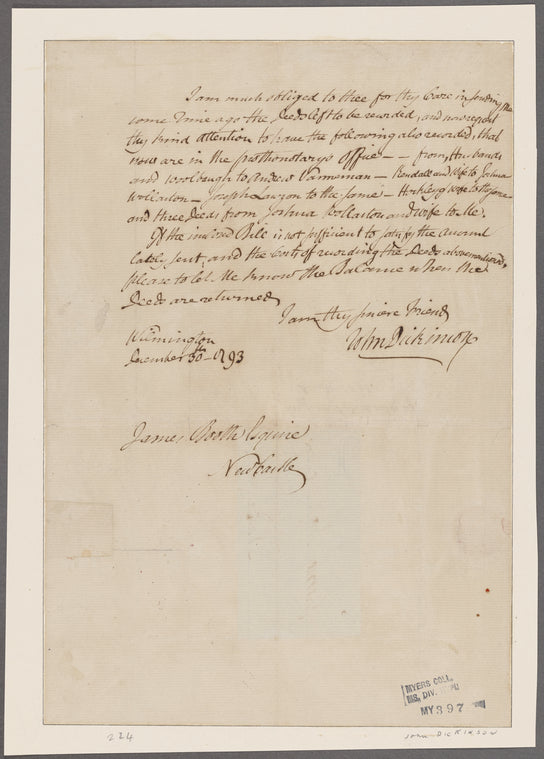 I am much obliged to thee for thy Care in sending me
some Time ago the Deeds left to be recorded, and now request
thy kind attention to have the following also recorded, that
now are in the prothonotarys Office - - from, Husbands
and Woolbaugh to Andrew Vanneman - Kendall and Wife to Joshua
Wollaston - Joseph Lawson to the same - wife to the same -
and three Deeds from Joshua Wollaston and Wife to Me.
If the inclosed Bill is not sufficient to satisfy the Account
lately sent, and the Costs of recording the Deeds abovementioned,
please to let Me know the Balance when the
Deeds are returned
I am thy sincere Friend
John Dickinson
Wilmington
December 30th - 1793
James Booth Esquire
NewCastle
MYERS COLL.
MS. DIV.
MY 397
224
JOHN DICKINSON